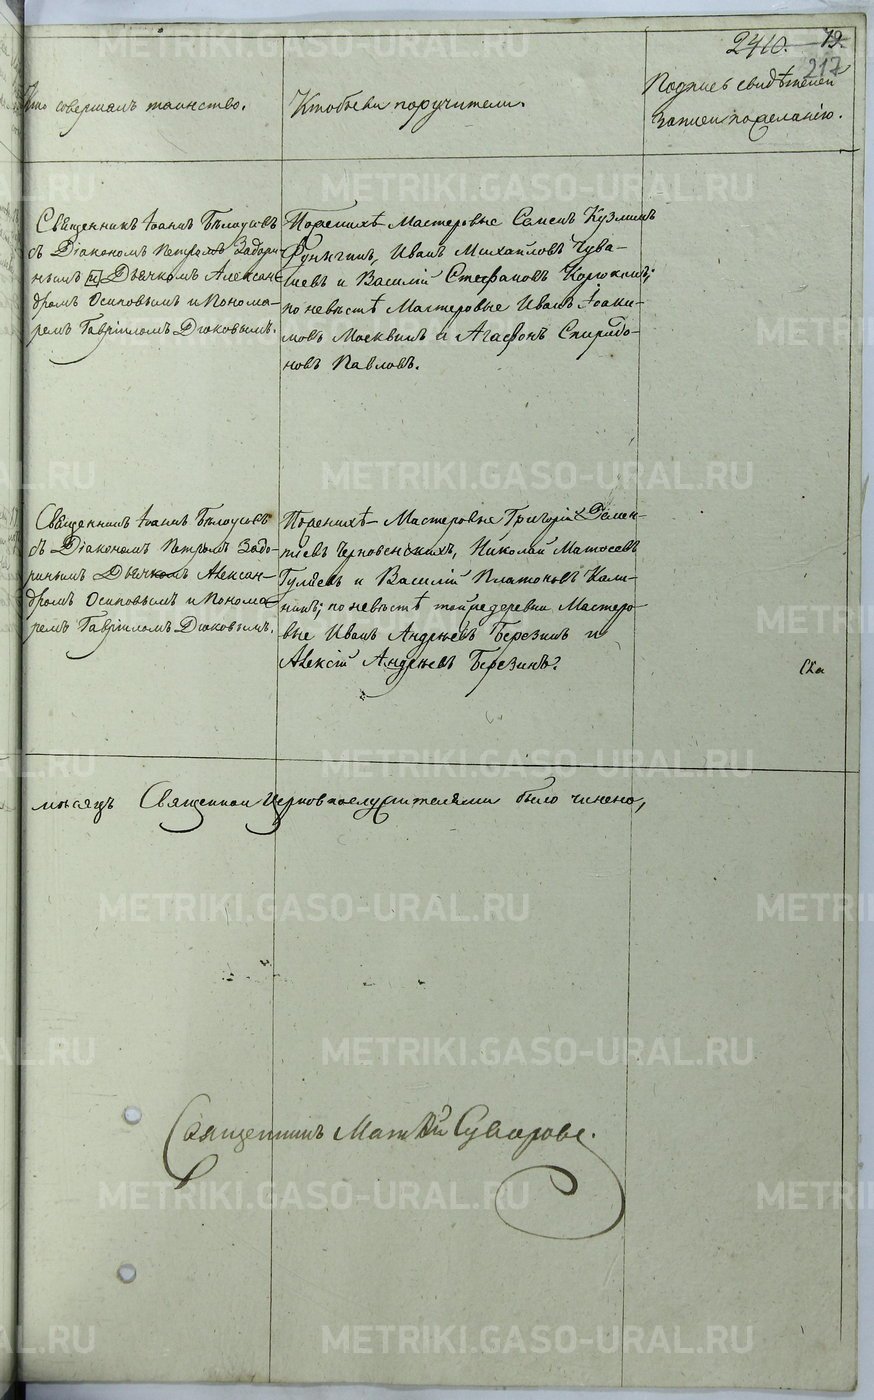 2410. 19.
217
Кто совершалъ таинство.
Кто были поручители.
Подпись свидѣтелей
записи по желанію.
Священникъ Іоаннъ Бѣлоусовъ
съ Діакономъ Петромъ Задори-
нымъ и Дьячкомъ Алексан-
дромъ Осиповымъ и Понома-
ремъ Гавріиломъ Дюковымъ.
По женихѣ Мастеровые Семенъ Кузминъ
Иванъ Михайловъ Чува-
шевъ и Василій Стефановъ
по невѣстѣ Мастеровые Иванъ Іоаки-
мовъ Москвинъ и Агафонъ Спиридо-
новъ Павловъ.
Священникъ Іоаннъ Бѣлоусовъ
съ Діакономъ Петромъ Задо-
ринымъ Дьячкомъ Алексан-
дромъ Осиповымъ и Понома-
ремъ Гавріиломъ Дюковымъ.
По женихѣ Мастеровые Григорій Демен-
тіевъ Черновскихъ, Николай Матѳеевъ
Гуляевъ и Василій Платоновъ Кали-
нинъ; по невѣстѣ той же деревни Мастеро-
вые Иванъ Андреевъ Березинъ и
Алексій Андреевъ Березинъ.
мѣсяцъ Священно и Церковнослужителями было чинено,
Священникъ Матѳій Суворовъ.
METRIKI.GASO-URAL.RU